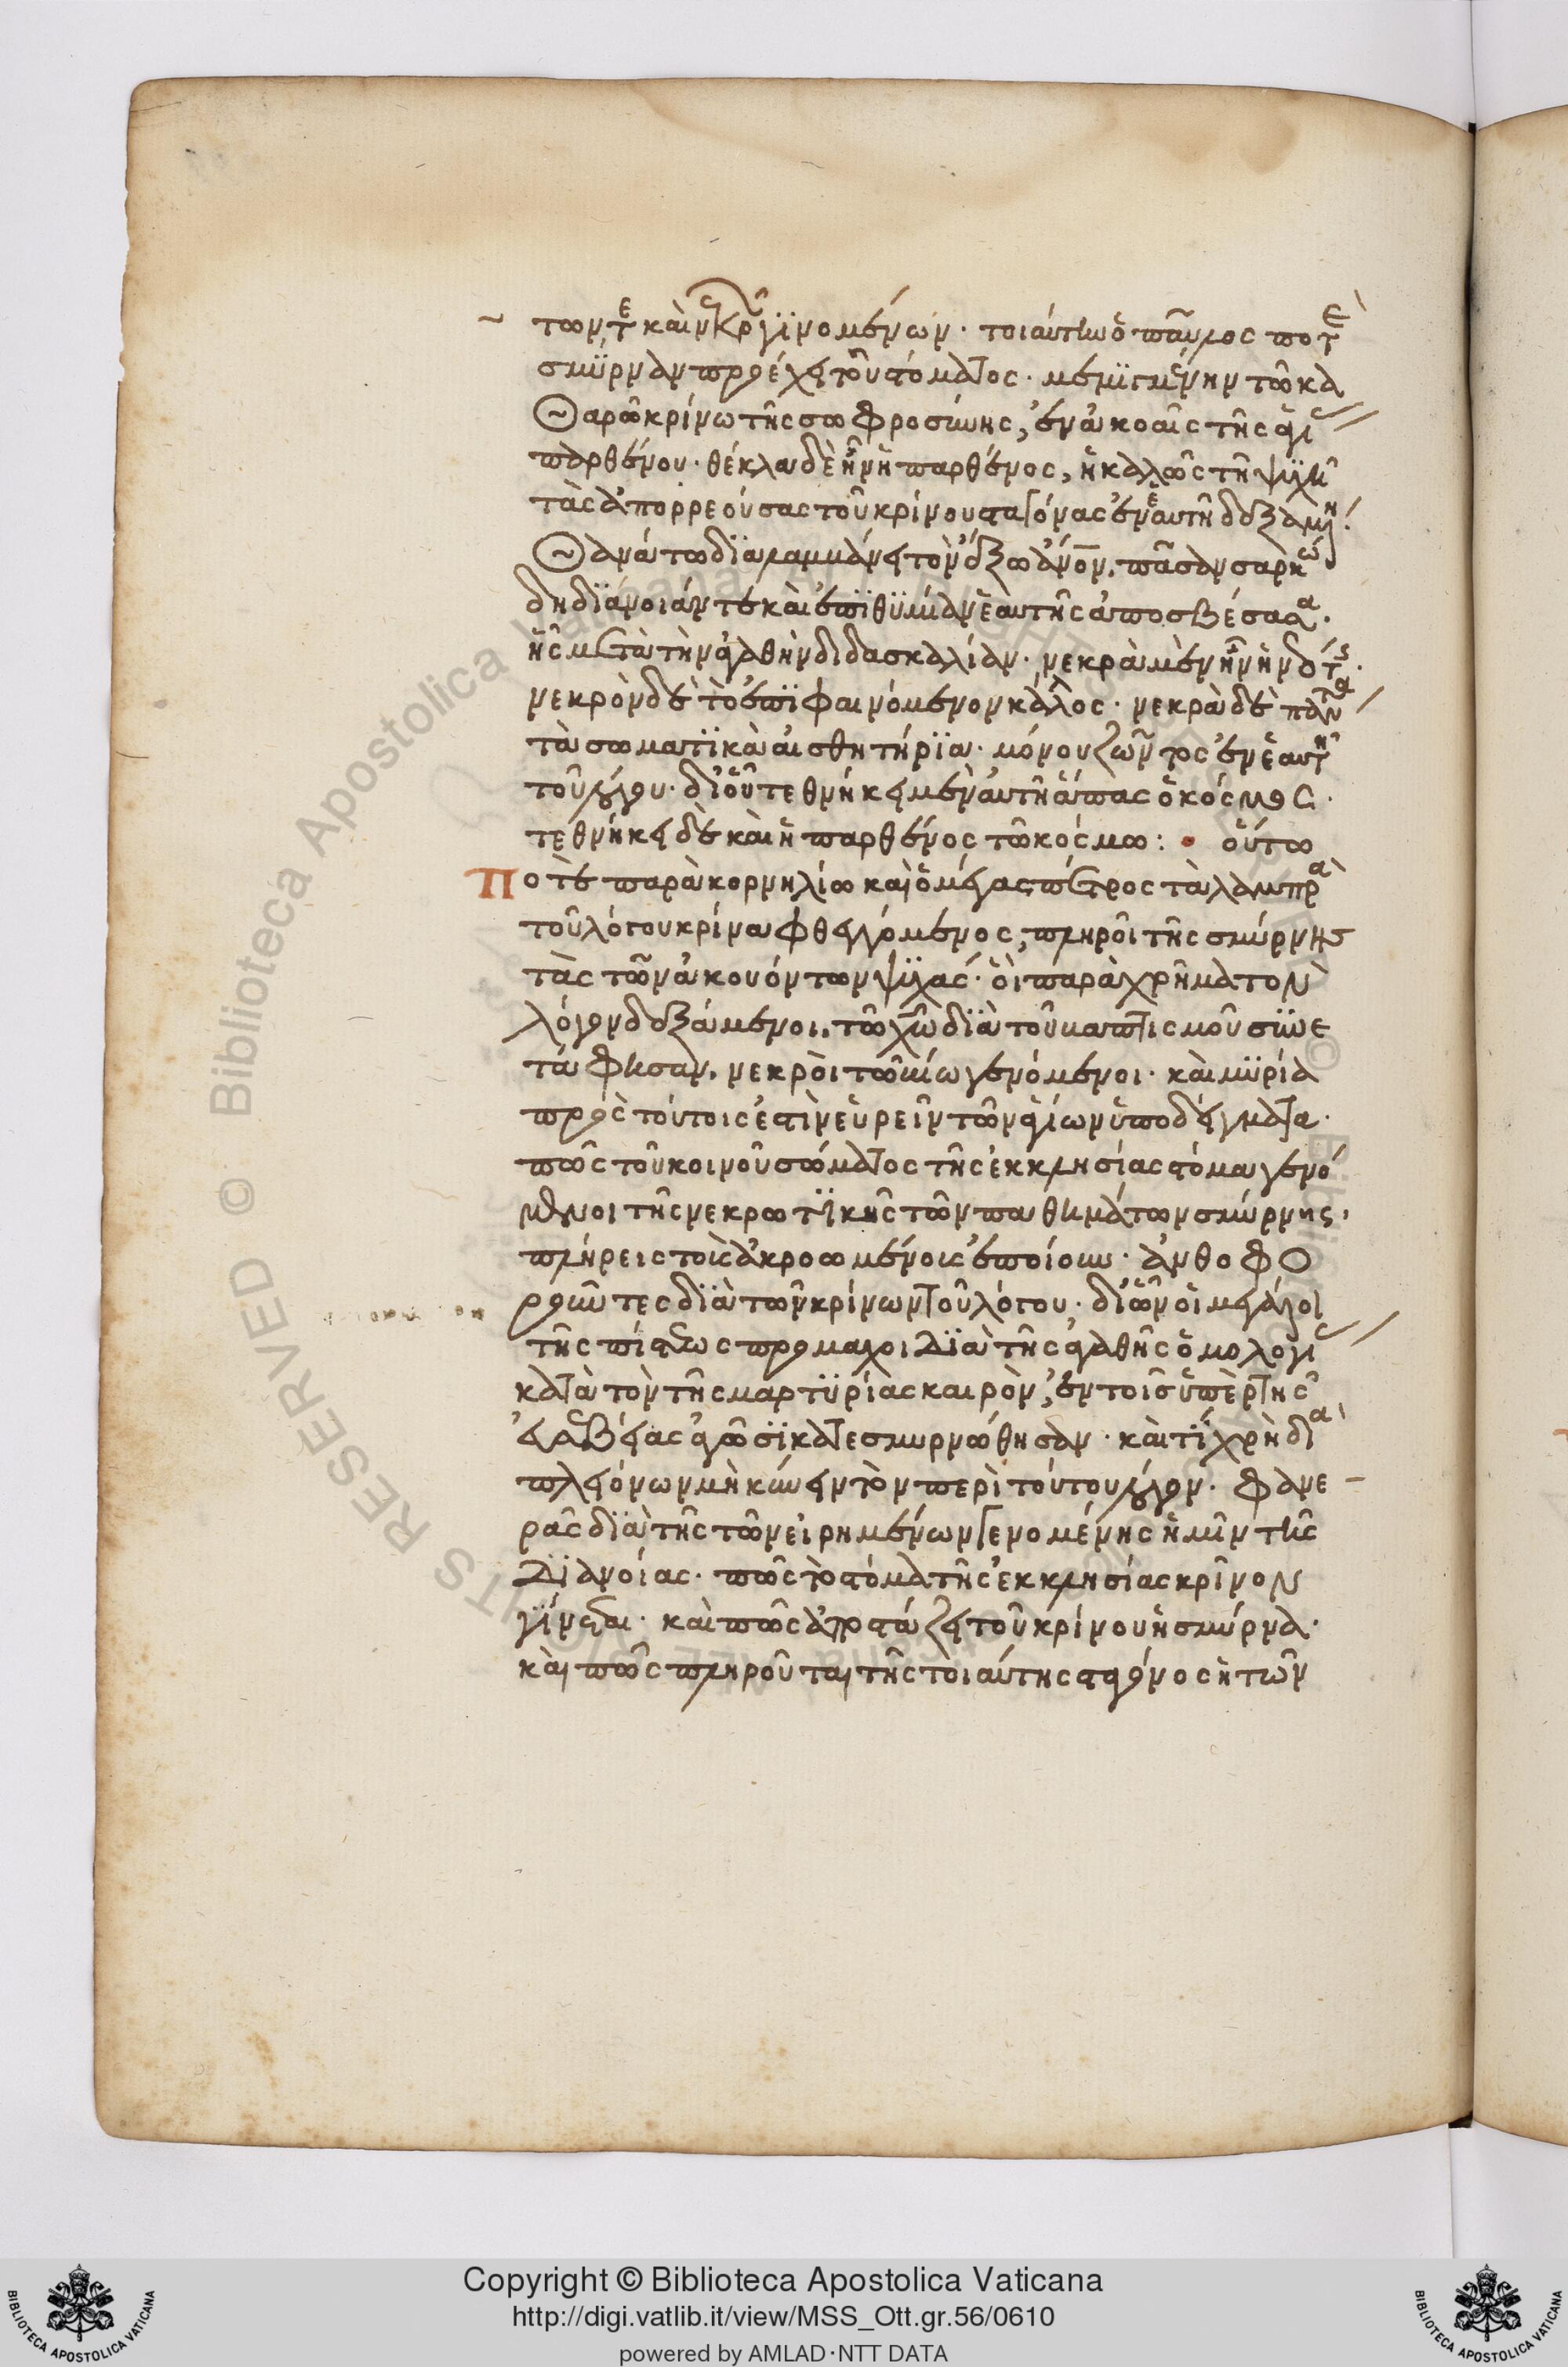 των τε καὶ νεκρῶν γϊνομένων· τοιαύτην ὁ παῦλος ποτὲ
σμϋρναν προέχει τοῦ στόματος· μεμϊγμένην τῶ κα
θαρῶ κρίνω τῆς σωφροσύνης, ἐν ἀκοαῖς τῆς ἁγί
παρθένου· θέκλα δὲ ἦν ἡ παρθένος, ἡ καλῶς τῆ ψϋχῆ
τὰς ἀπορρεούσας τοῦ κρίνου σταγόνας ἐν ἑαυτῆ δεξαμένη·
θανάτω δϊαλαμβάνει τὸν ἔξω ἄνον. πᾶσαν σαρκώ
δη δϊάνοιάν τε καὶ ἐπϊθϋμίαν ἑαυτῆς ἀποσβέσασα·
ἧς μετὰ τὴν ἀγαθὴν διδασκαλίαν· νεκρὰ μὲν ἦν ἡ νεότης·
νεκρὸν δὲ τὸ ἐπϊφαινόμενον κάλλος· νεκρὰ δὲ πάντα
τὰ σωματϊκὰ αἰσθητήρϊα· μόνου ζῶντος ἐν ἑαυτῆ
τοῦ λόγου· δι' οὗ τεθνήκει μὲν αὐτῆ ἅπας ὁ κόσμος·
τεθνήκει δὲ καὶ ἡ παρθένος τῶ κόσμω: • οὕτω
Ποτὲ παρὰ κορνηλίω καὶ ὁ μέγας πέτρος τὰ λαμπρὰ
τοῦ λόγου κρίνα φθεγγόμενος, πληροῖ τῆς σμύρνης
τὰς τῶν ἀκουόντων ψϋχάς· οἱ παρὰ χρῆμα τὸν
λόγον δεξάμενοι, τῶ χῶ δϊὰ τοῦ βαπτίσμοῦ συνε
τάφησαν, νεκροὶ τῶ βίω γενόμενοι· καὶ μϋρία
πρὸς τούτοις ἐστὶν εὑρεῖν τῶν ἁγίων ὑποδείγματα·
πῶς τοῦ κοινοῦ σώματος τῆς ἐκκλησίας στόμα γενό
μενοι τῆς νεκρωτϊκῆς τῶν παθημάτων σμύρνης,
πλήρεις τοὺς ἀκροωμένους ἐποίουν· ἀνθοφο
ροῦντες δϊὰ τῶν κρίνων τοῦ λόγου· δι' ὧν οἱ μεγάλοι
τῆς πίστεως πρόμαχοι δϊὰ τῆς ἀγαθῆς ὁμολογί
κατὰ τὸν τῆς μαρτϋρίας καιρὸν, ἐν τοῖς ὑπὲρ τῆς
εὐσεβείας ἀγῶσϊ κατεσμυρνώθησαν· καὶ τΐ χρὴ διὰ
πλειόνων μηκύνειν τὸν περὶ τούτου λόγον· φανε
ρᾶς δϊὰ τῆς τῶν εἰρημένων γενομένης ἡμῖν τῆς
δϊανοίας· πῶς τὸ στόμα τῆς ἐκκλησίας κρῖνον
γϊνεται· καὶ πῶς ἀποστάζει τοῦ κρίνου ἡ σμύρνα·
καὶ πῶς πληροῦται τῆς τοιαύτης σταγόνος ἡ τῶν
Copyright © Biblioteca Apostolica Vaticana
http://digi.vatlib.it/view/MSS_Ott.gr.56/0610
powered by AMLAD·NTT DATA